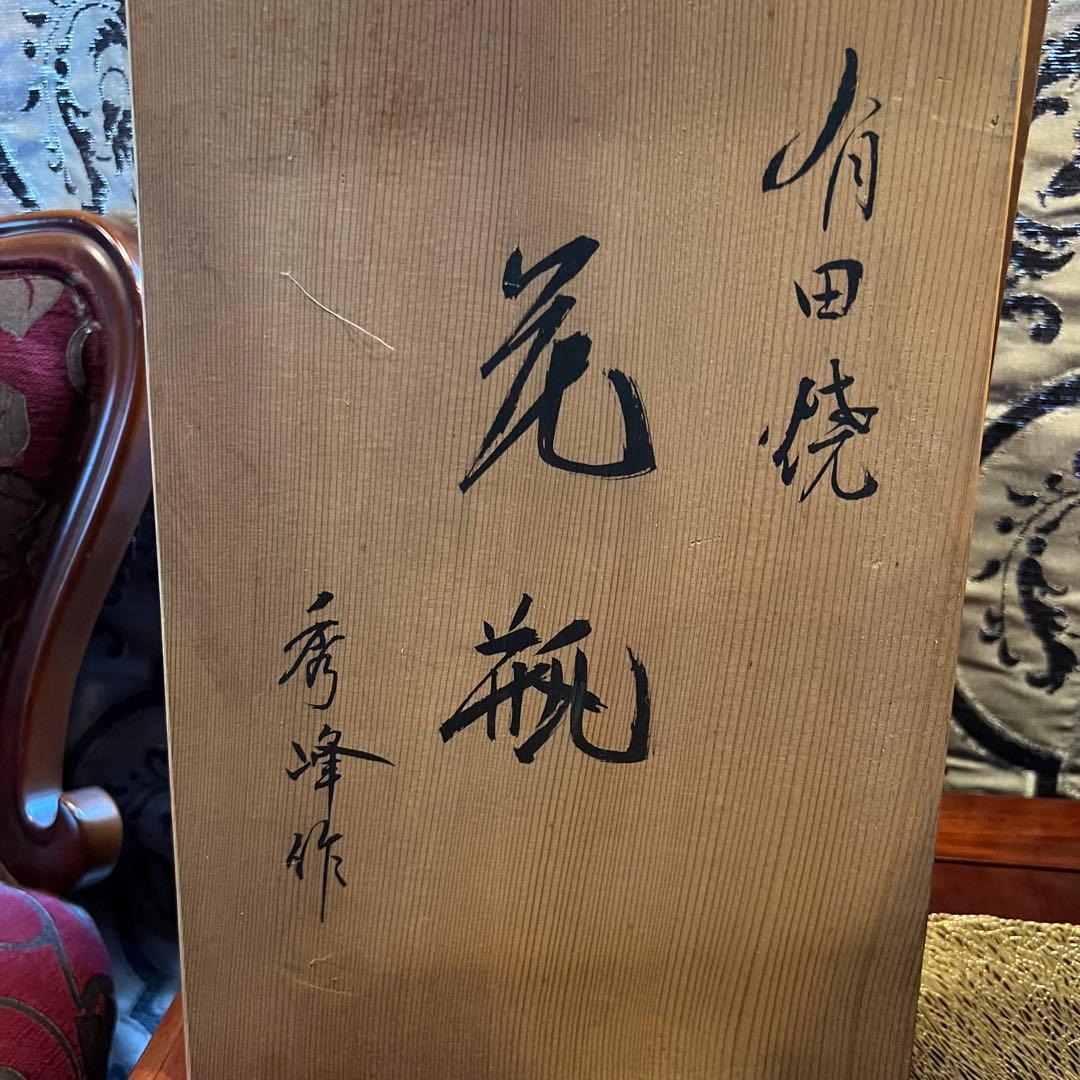 有田焼
花瓶
秀峰作